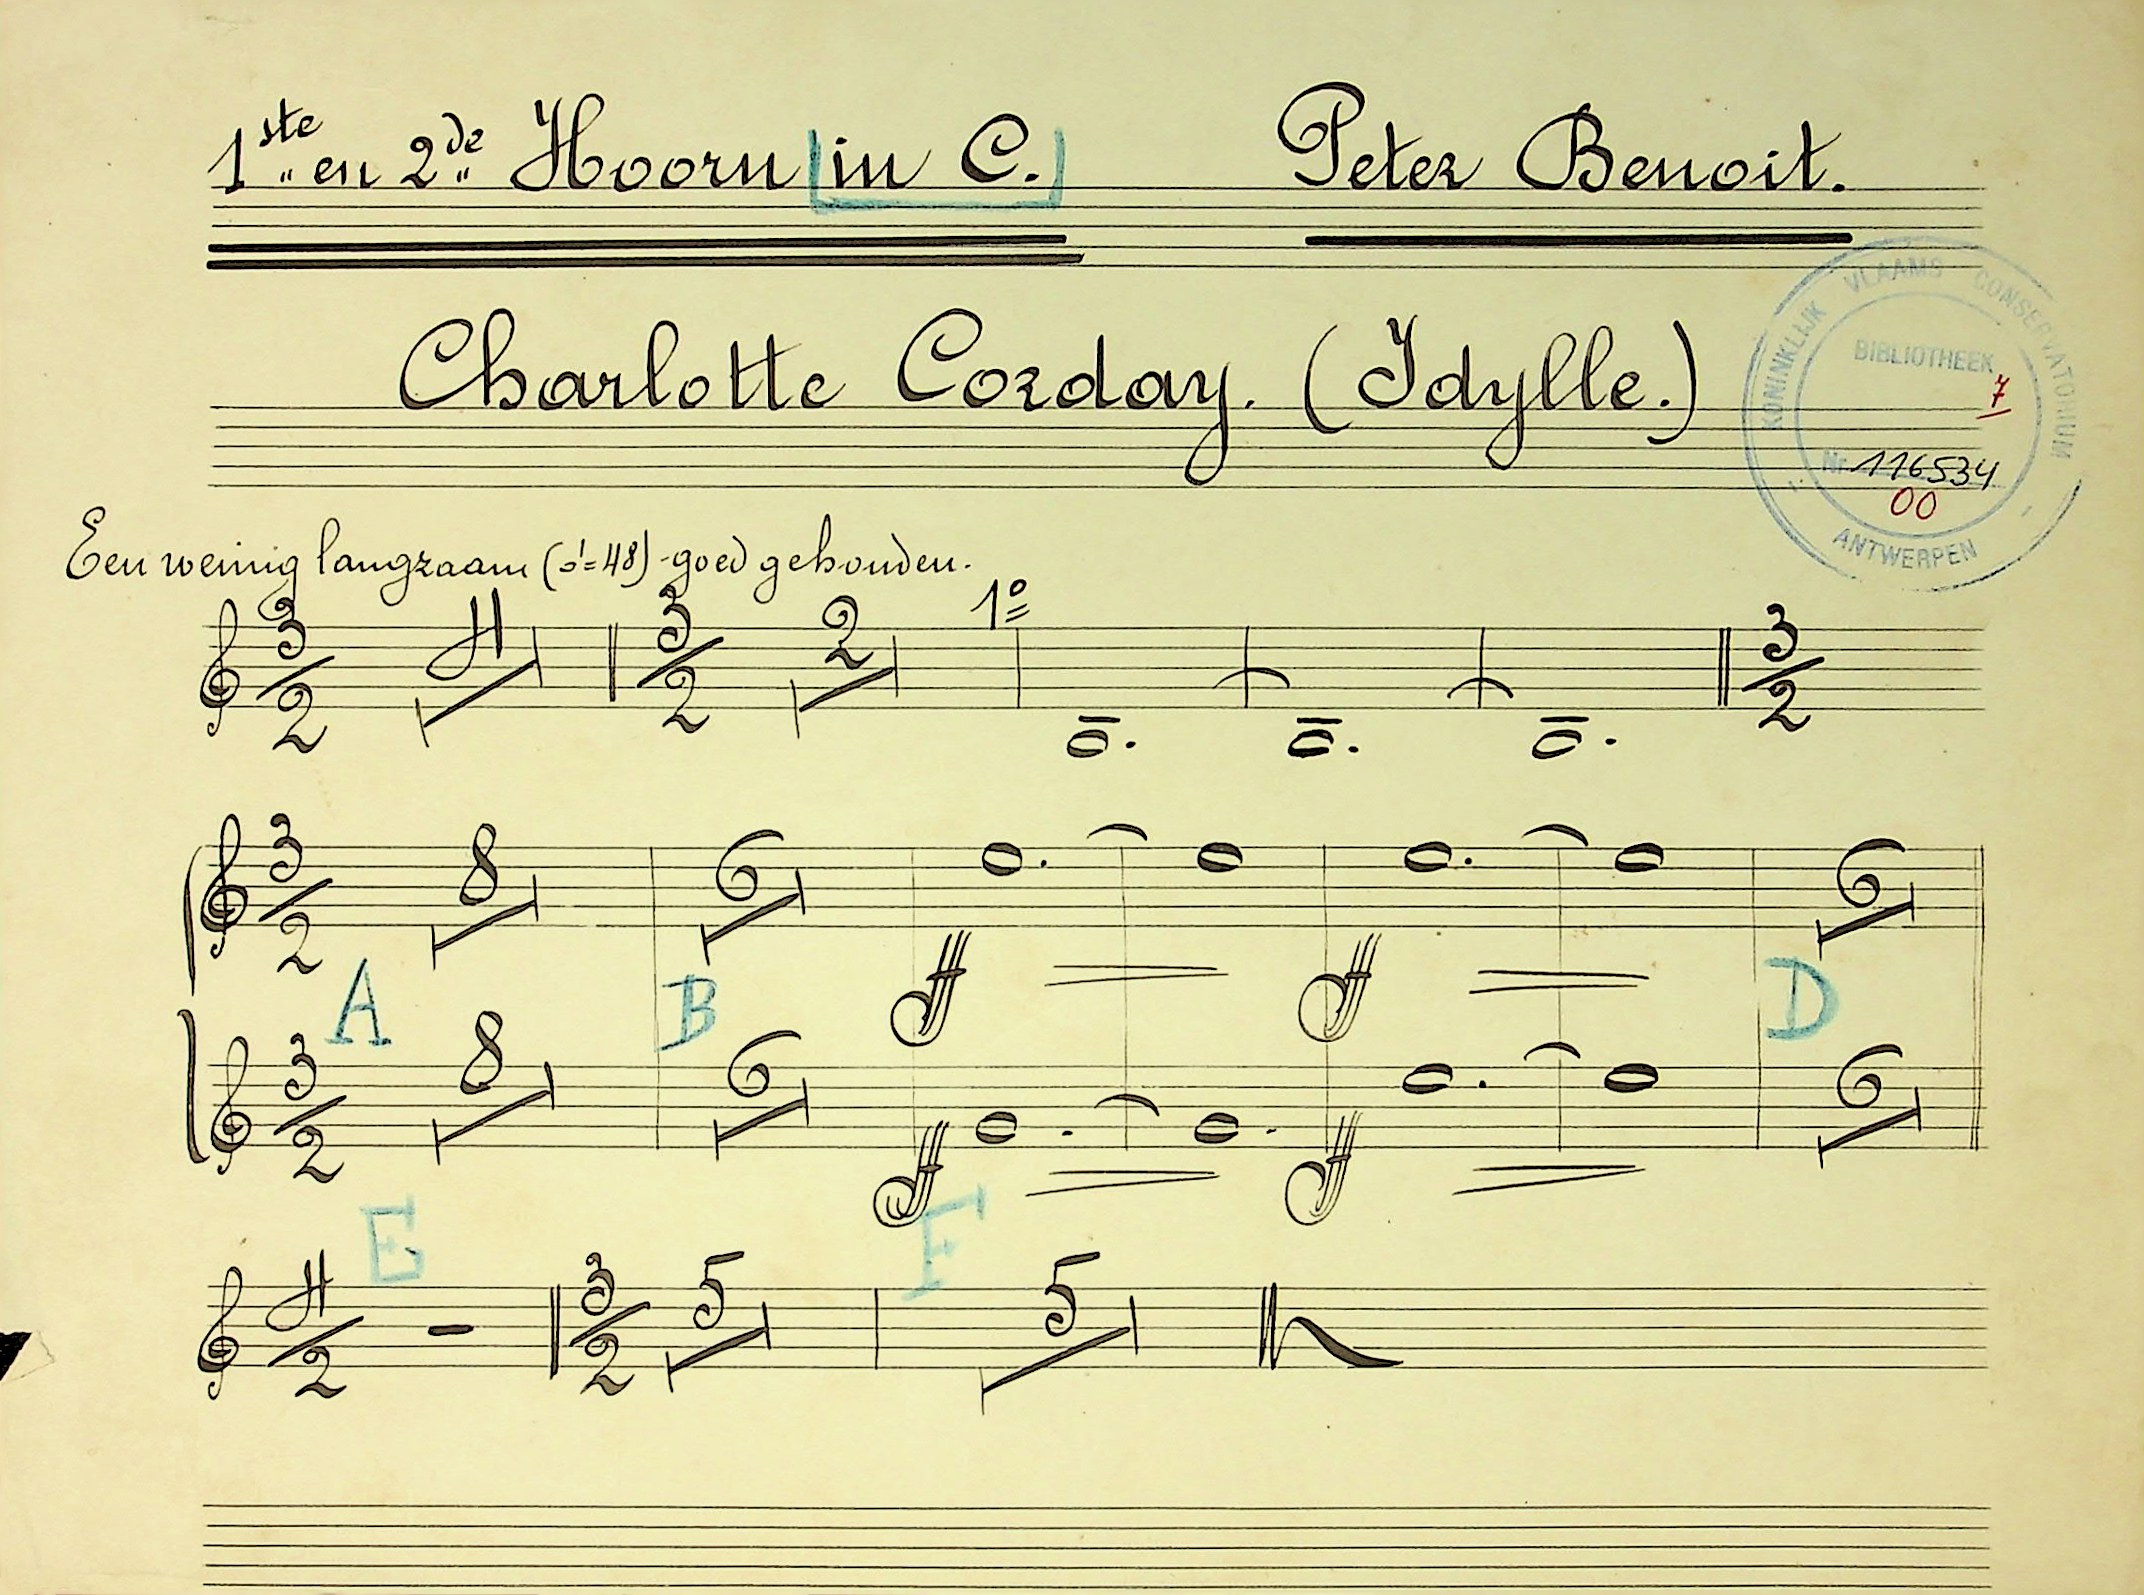 1ste en 2de Hoorn in C. Peter Benoit.
Charlotte Corday. (Idylle.)
KONINKLIJK VLAAMS CONSERVATORIUM
BIBLIOTHEEK
7
Nr 116534
00
ANTWERPEN
Een weinig langzaam (𝅗𝅥=48) - goed gehouden.
3/2 4 3/2 2 1º 3/2
3/2 8 6 6
A B f f D
3/2 8 6 6
f f
E F
4/2 3/2 5 5